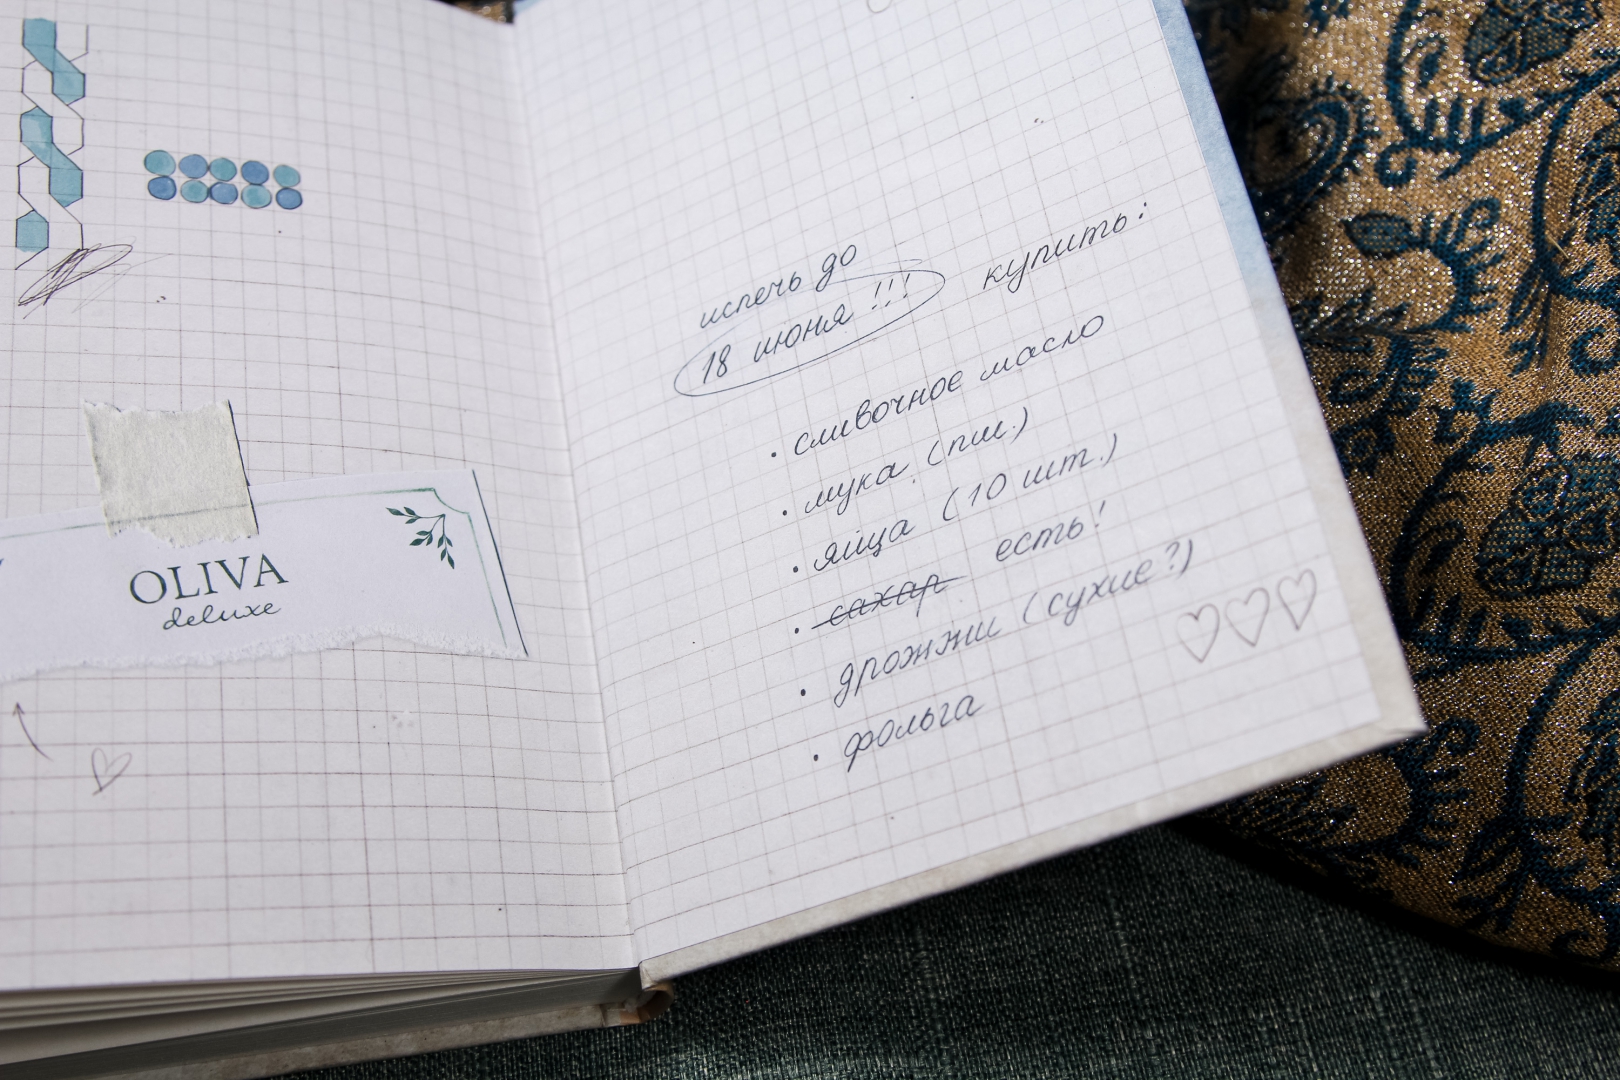 OLIVA
deluxe
испечь до
18 июня !!!
купить:
· сливочное масло
· мука (пш.)
· яйца (10 шт.)
· сахар есть!
· дрожжи (сухие?)
· фольга